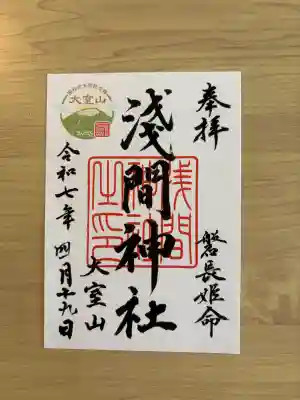 奉拝
磐長姫命
淺間神社
大室山
淺間
神社
之印
大室山
令和七年四月十九日